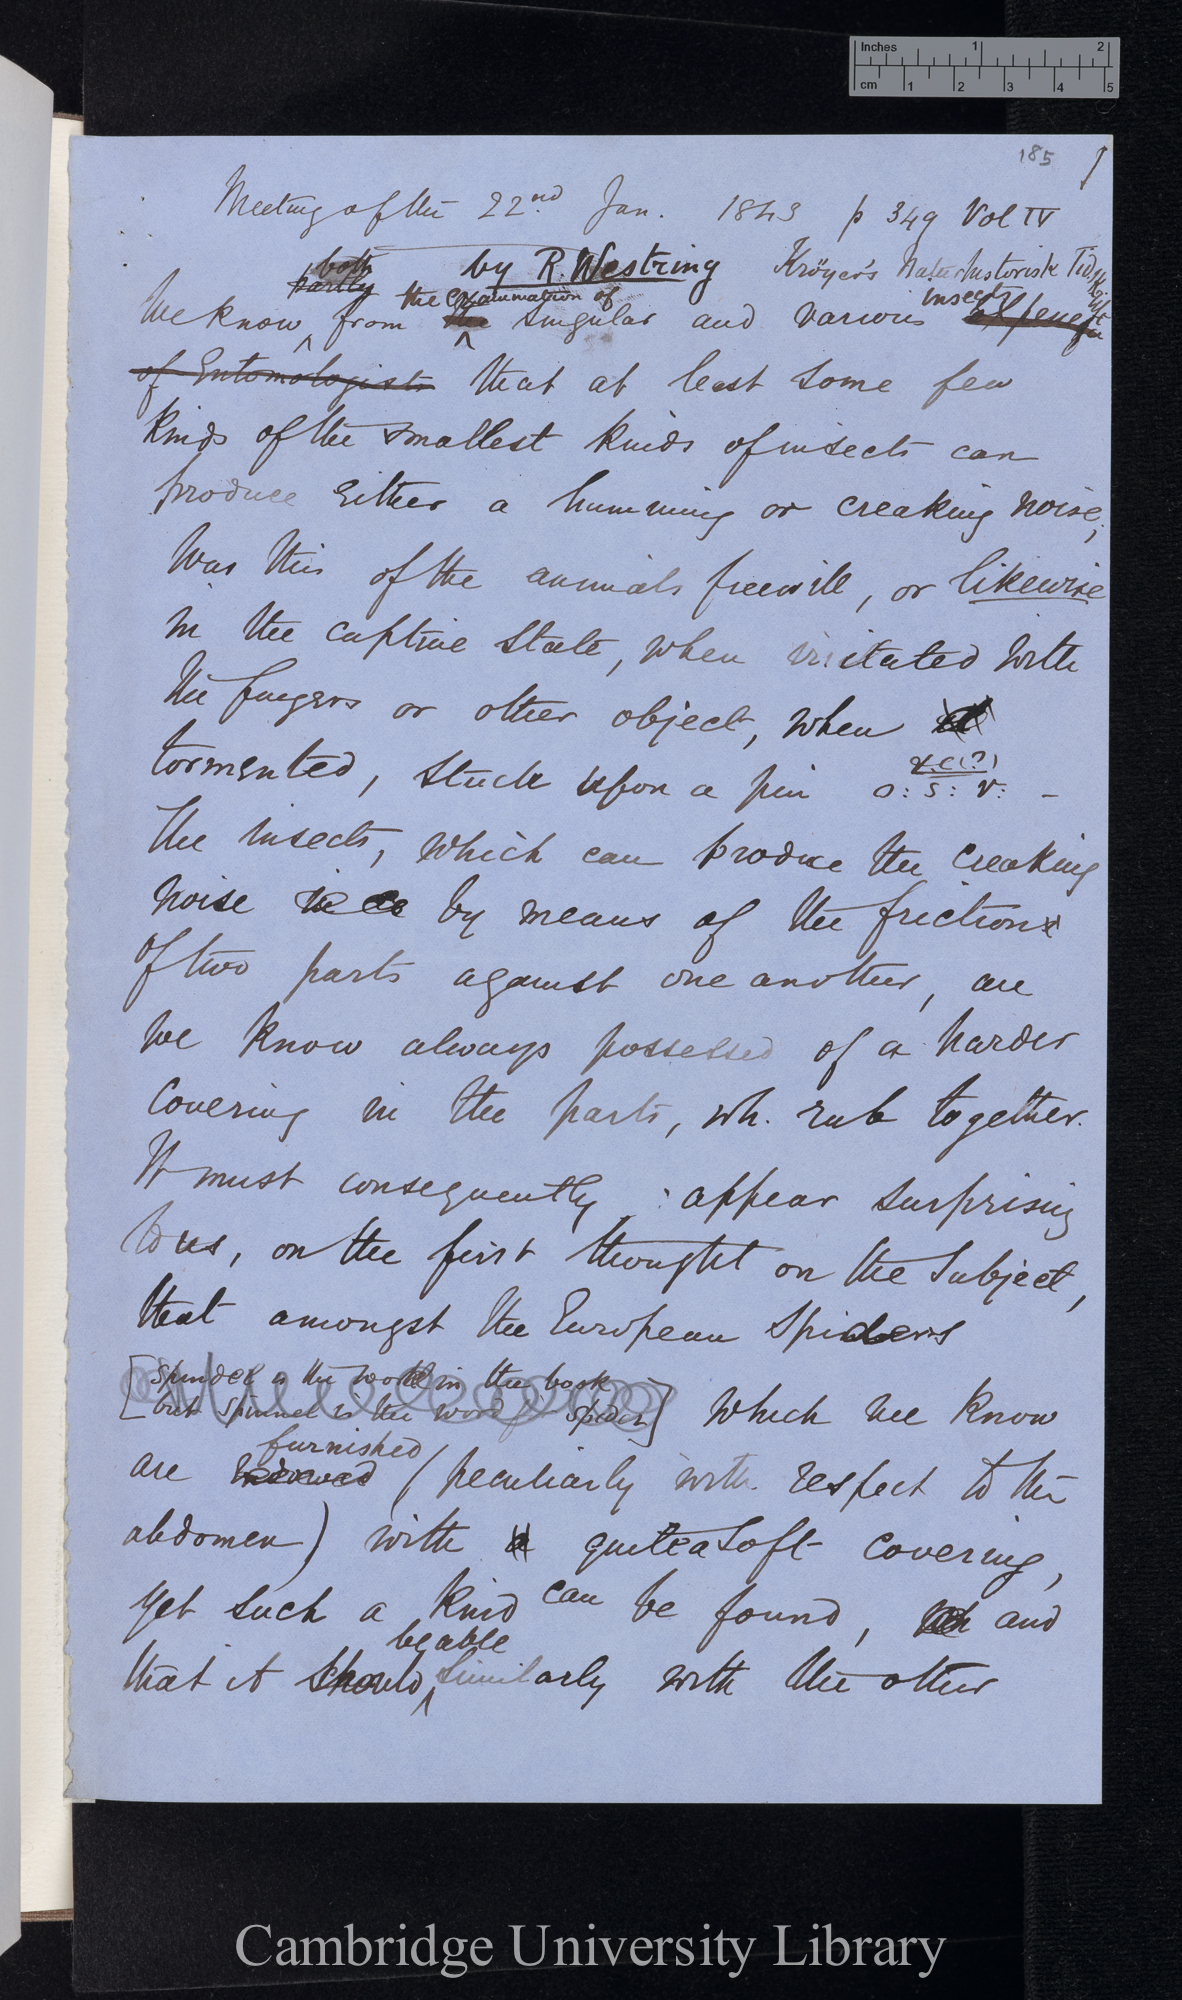 Inches 1 2
cm 1 2 3 4 5
185
Meeting of the 22nd Jan. 1843 p 349 Vol IV
by R. Westring Kröyer's Naturhistorisk Tidskrift
both
partly the examination of insects
We know from the singular and various
of Entomologists that at least some few
kinds of the smallest kinds of insects can
produce either a humming or creaking noise;
Was this of the animals freewill, or likewise
in the captive state, when irritated with
the fingers or other object, when
tormented, stuck upon a pin o: s: v: –
&c (?)
The insects, which can produce the creaking
noise by means of the friction
of two parts against one another, are
we know always possessed of a harder
covering in the parts, wh. rub together.
It must consequently appear surprising
to us, on the first thought on the subject,
that amongst the European Spiders
[Spindel is the word in the book
but Spinnel is the word for spider] which we know
furnished
are (peculiarly with respect to the
abdomen) with a quite a soft covering,
yet such a kind can be found, wh and
be able
that it should similarly with the other
Cambridge University Library